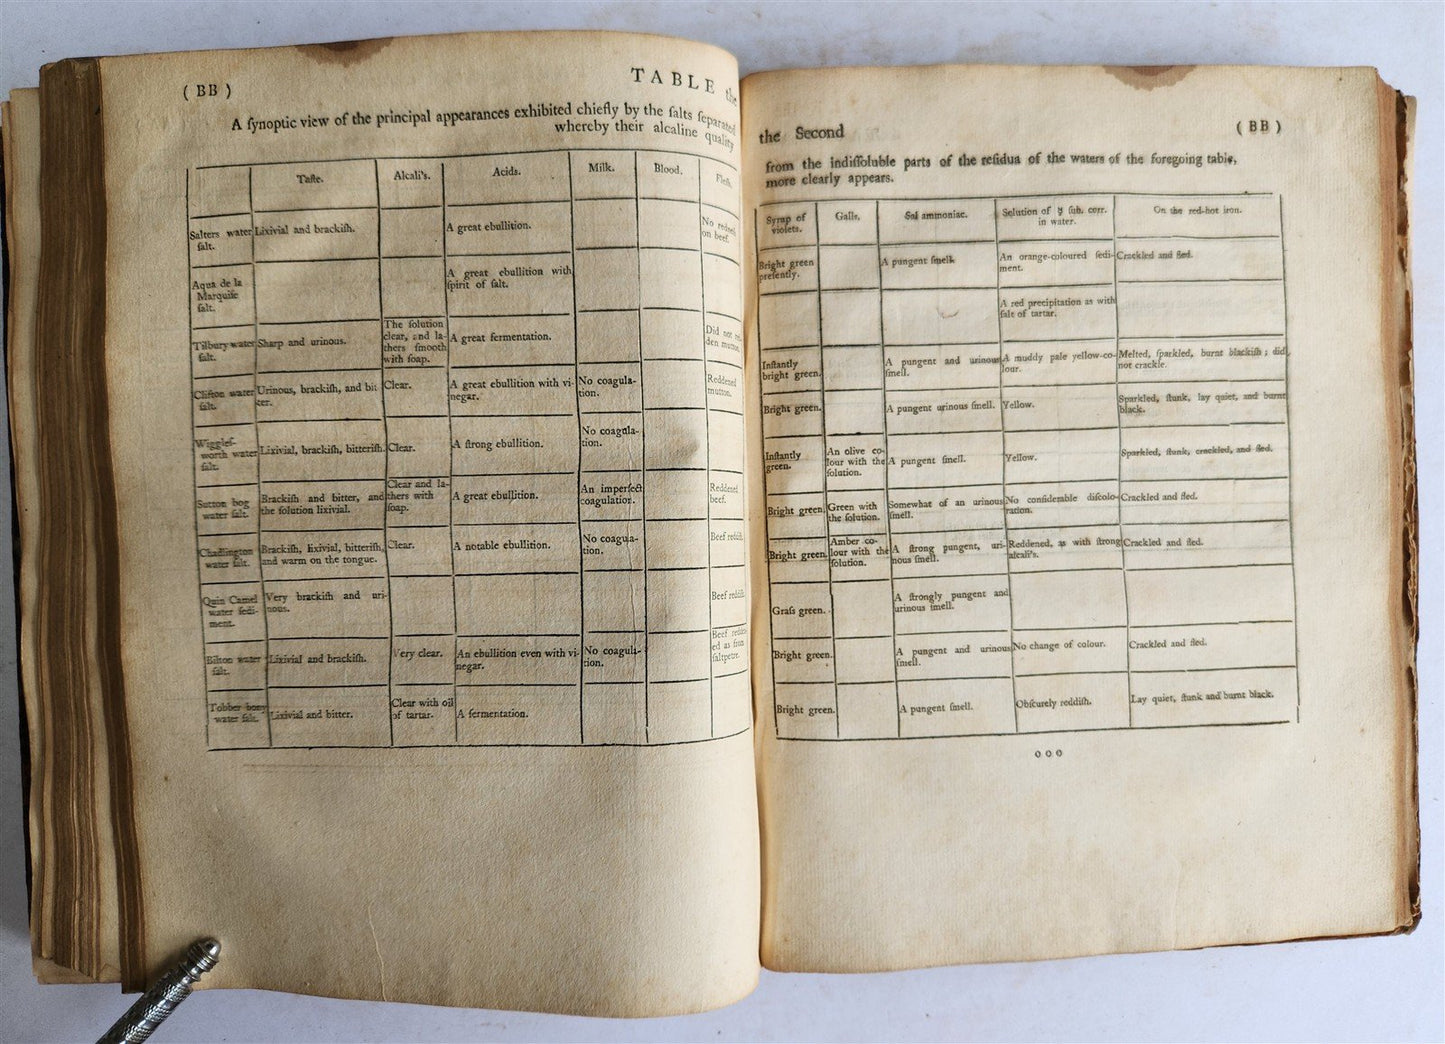 ( BB )
TABLE the
A ſynoptic view of the principal appearances exhibited chiefly by the ſalts ſeparated
whereby their alcaline quality
Taſte.
Alcali's.
Acids.
Milk.
Blood.
Fleſh.
Salters water
ſalt.
Lixivial and brackiſh.
A great ebullition.
No redneſ
on beef.
Aqua de la
Marquiſe
ſalt.
A great ebullition with
ſpirit of ſalt.
Tilbury water
ſalt.
Sharp and urinous.
The ſolution
clear, and la-
thers ſmooth
with ſoap.
A great fermentation.
Did not
den mutton.
Clifton water
ſalt.
Urinous, brackiſh, and bit
ter.
Clear.
A great ebullition with vi-
negar.
No coagula-
tion.
Reddened
mutton.
Wiggleſ-
worth water
ſalt.
Lixivial, brackiſh, bitteriſh.
Clear.
A ſtrong ebullition.
No coagula-
tion.
Sutton bog
water ſalt.
Brackiſh and bitter, and
the ſolution lixivial.
Clear and la-
thers with
ſoap.
A great ebullition.
An imperfect
coagulation.
Reddened
beef.
Chadlington
water ſalt.
Brackiſh, lixivial, bitteriſh,
and warm on the tongue.
Clear.
A notable ebullition.
No coagula-
tion.
Beef reddiſh.
Quin Camel
water ſedi-
ment.
Very brackiſh and uri-
nous.
Beef reddiſh.
Bilton water
ſalt.
Lixivial and brackiſh.
Very clear.
An ebullition even with vi-
negar.
No coagula-
tion.
Beef redden-
ed as from
ſaltpetre.
Tobber bony
water ſalt.
Lixivial and bitter.
Clear with oil
of tartar.
A fermentation.
the Second
( BB )
from the indiſſoluble parts of the reſidua of the waters of the foregoing table,
more clearly appears.
Syrup of
violets.
Galls.
Sal ammoniac.
Solution of ☿ ſub. corr.
in water.
On the red-hot iron.
Bright green
preſently.
A pungent ſmell.
An orange-coloured ſedi-
ment.
Crackled and fled.
A red precipitation as with
ſalt of tartar.
Inſtantly
bright green.
A pungent and urinous
ſmell.
A muddy pale yellow-co-
lour.
Melted, ſparkled, burnt blackiſh; did
not crackle.
Bright green.
A pungent urinous ſmell.
Yellow.
Sparkled, ſtunk, lay quiet, and burnt
black.
Inſtantly
green.
An olive co-
lour with the
ſolution.
A pungent ſmell.
Yellow.
Sparkled, ſtunk, crackled, and fled.
Bright green.
Green with
the ſolution.
Somewhat of an urinous
ſmell.
No conſiderable diſcolo-
ration.
Crackled and fled.
Bright green.
Amber co-
lour with the
ſolution.
A ſtrong pungent, uri-
nous ſmell.
Reddened, as with ſtrong
alcali's.
Crackled and fled.
Graſs green.
A ſtrongly pungent and
urinous ſmell.
Bright green.
A pungent and urinous
ſmell.
No change of colour.
Crackled and fled.
Bright green.
A pungent ſmell.
Obſcurely reddiſh.
Lay quiet, ſtunk and burnt black.
o o o